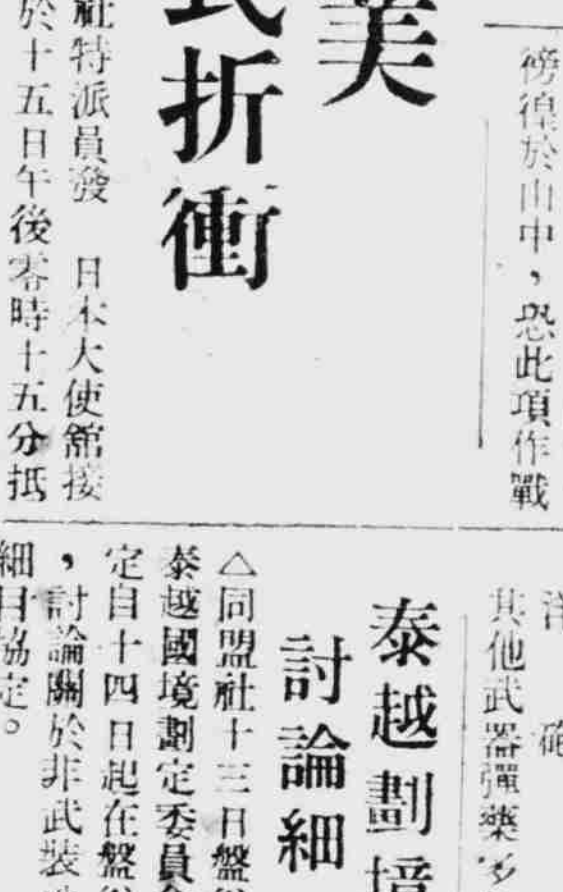 徬徨於山中，恐此項作戰
美
式折衝
社特派員發　日本大使舘接
於十五日午後零時十五分抵
洋　砲
其他武器彈藥多
泰越劃境
討論細
△同盟社十三日盤
泰越國境劃定委員會
定自十四日起在盤谷
，討論關於非武裝
細目協定。